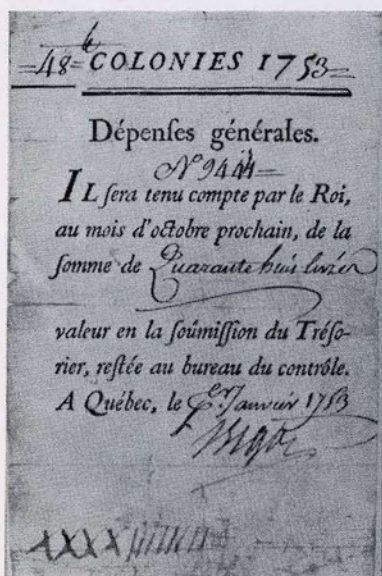 =48=ᵗᵗ COLONIES 1753=
Dépenſes générales.
Nº 944=
IL ſera tenu compte par le Roi,
au mois d'octobre prochain, de la
ſomme de Quarante huit livres
valeur en la ſoûmiſſion du Tréſo-
rier, reſtée au bureau du contrôle.
A Québec, le Er. Janvier 1753
Bigot